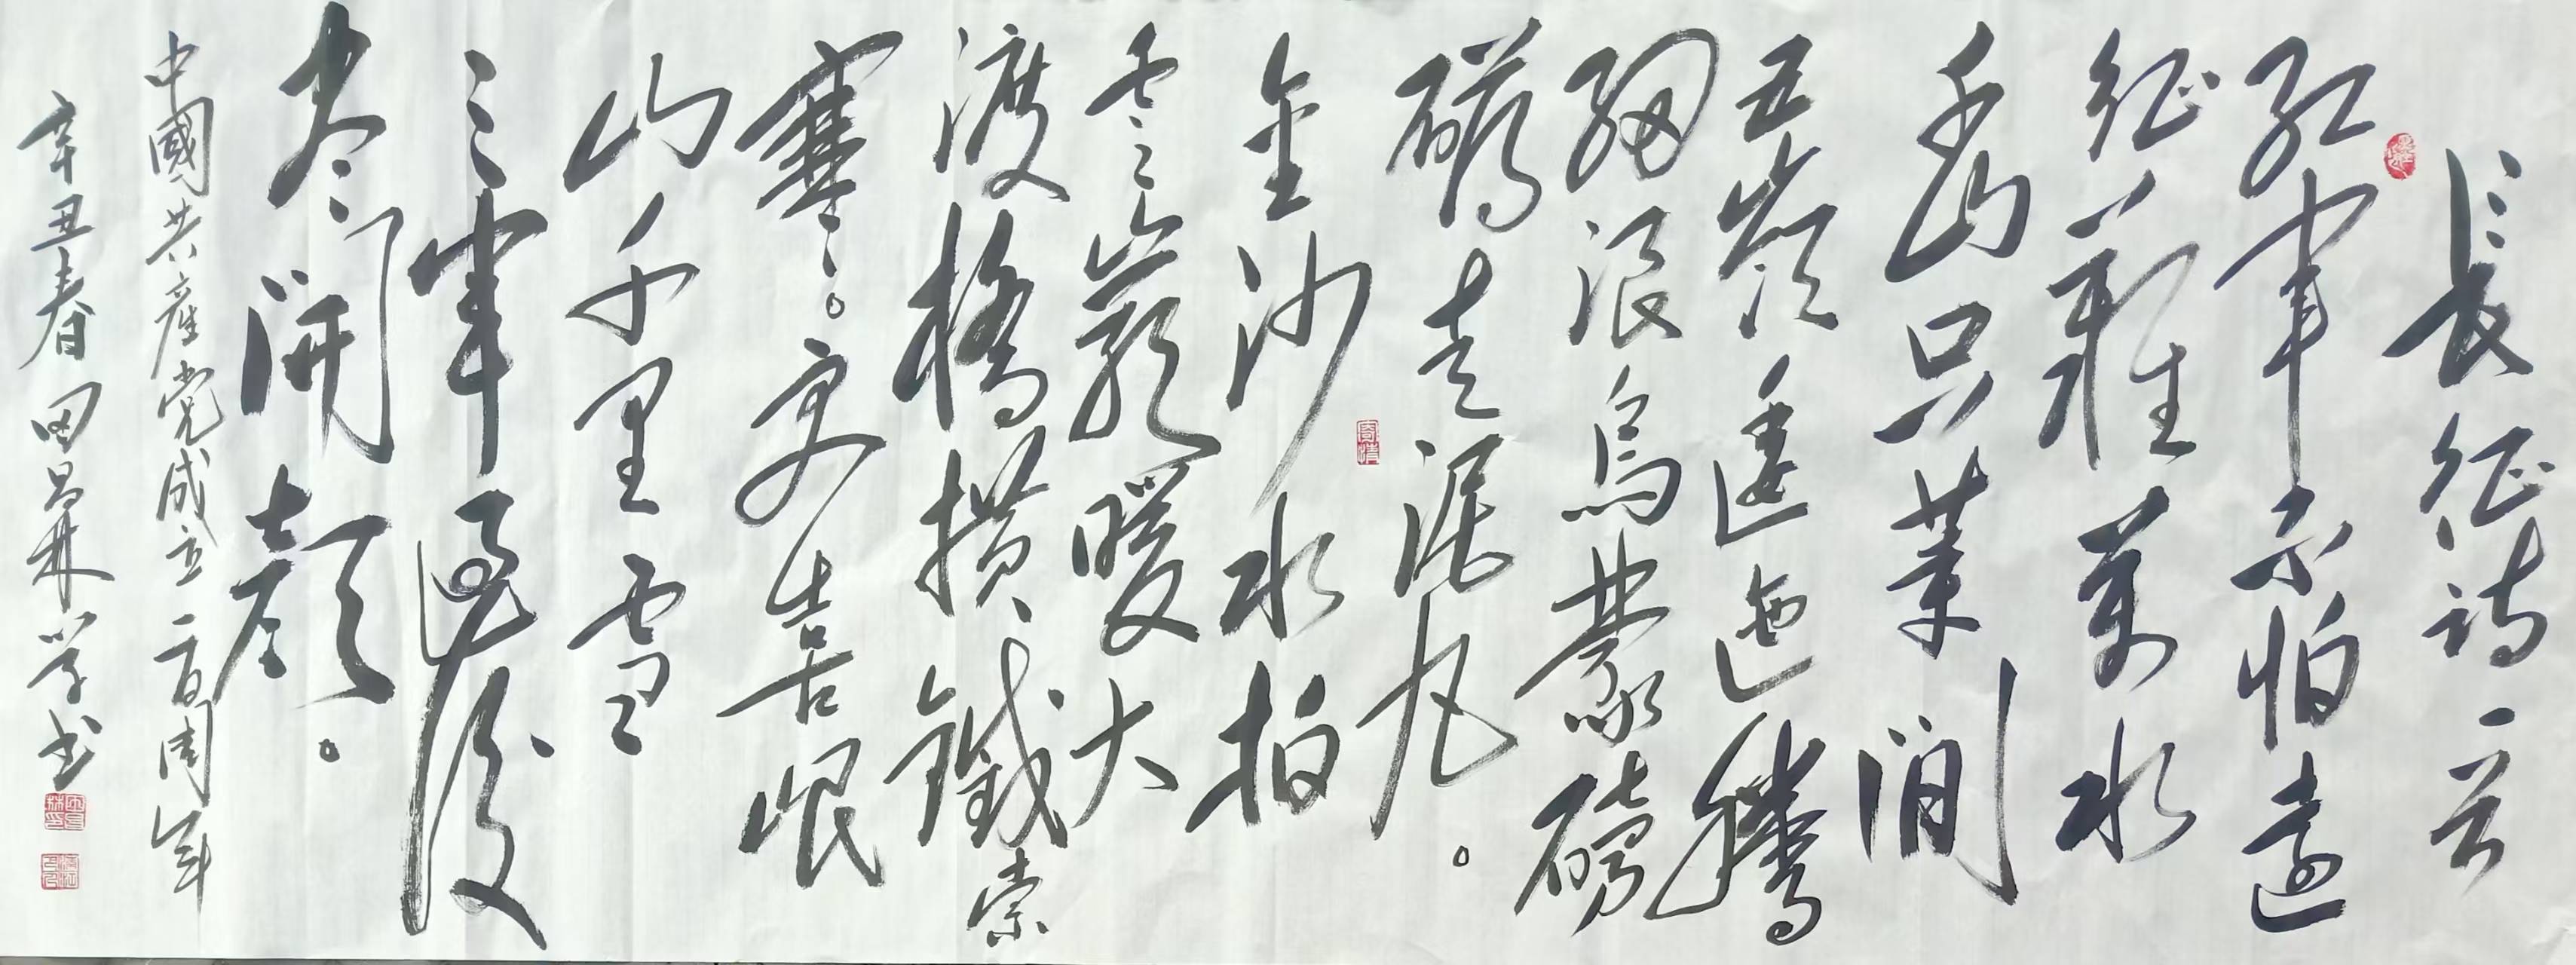 長征诗一首
红軍不怕遠
征難萬水
千山只等閒
五嶺逶迤騰
细浪烏蒙磅
礴走泥丸。
金沙水拍
雲巖暖大
渡橋横鐵索
寒。更喜岷
山千里雪
三軍過後
尽開顔。
中國共產党成立一百周年
辛丑春田昌林学书